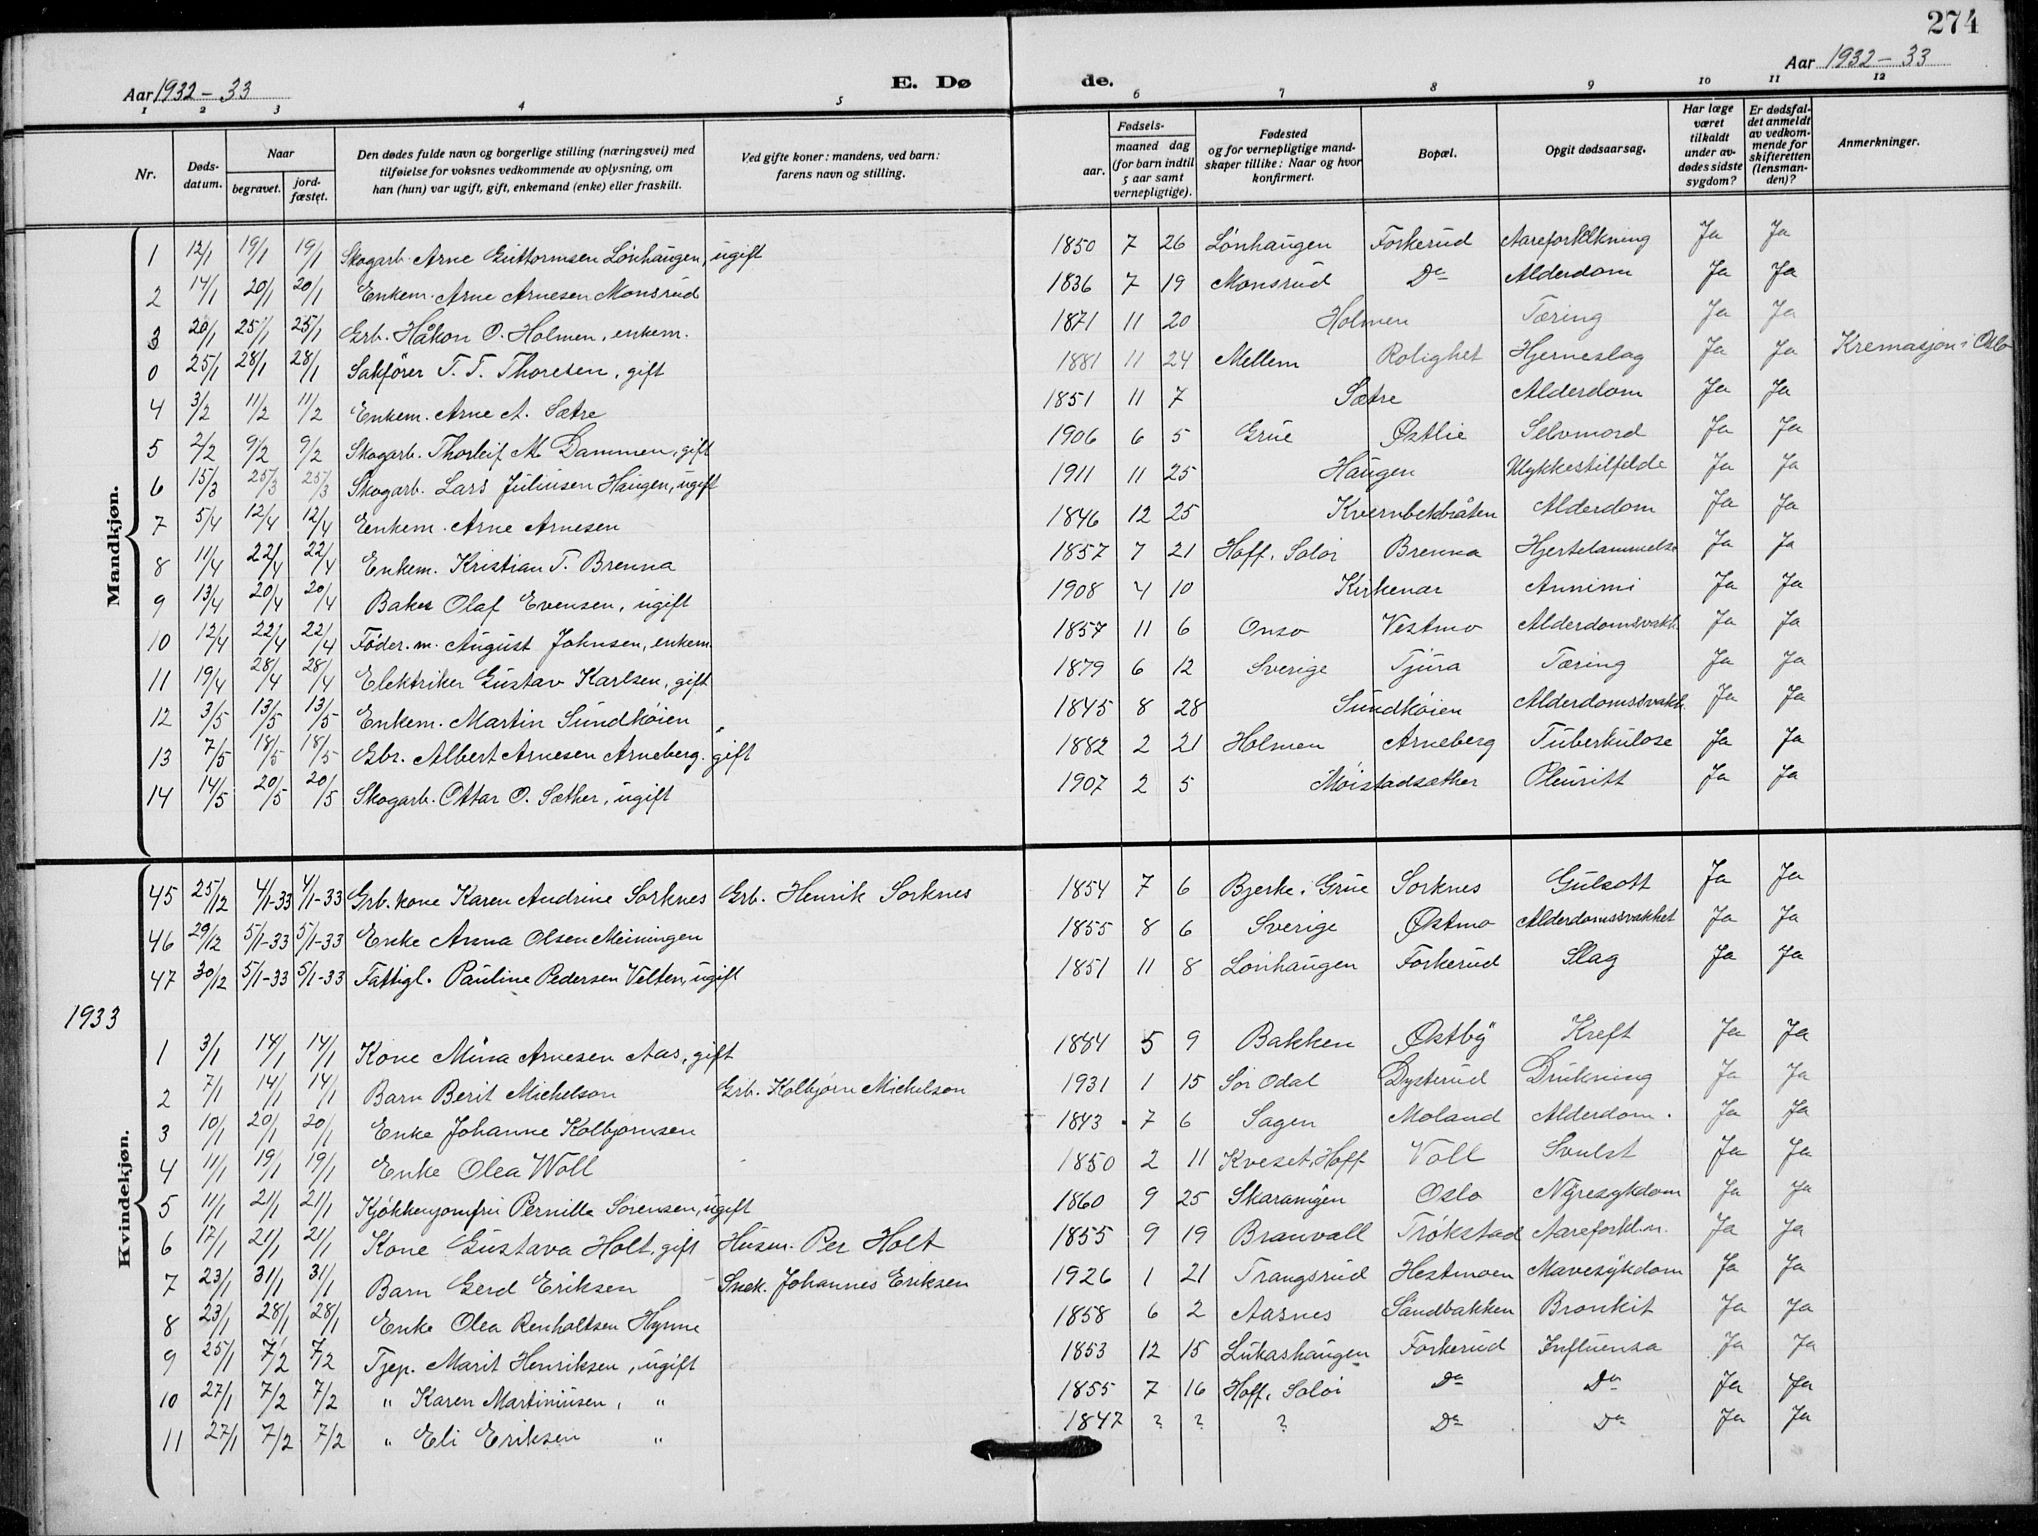 274
Aar 1932-33
E. Dø
de.
Aar 1932-33
1 2 3 4 5 6 7 8 9 10 11 12
Nr.
Døds-
datum.
Naar
begravet.
jord-
fæstet.
Den dødes fulde navn og borgerlige stilling (næringsvei) med
tilføielse for voksnes vedkommende av oplysning, om
han (hun) var ugift, gift, enkemand (enke) eller fraskilt.
Ved gifte koner: mandens, ved barn:
farens navn og stilling.
Fødsels-
aar.
maaned dag
(for barn indtil
5 aar samt
vernepligtige).
Fødested
og for vernepligtige mand-
skaper tillike: Naar og hvor
konfirmert.
Bopæl.
Opgit dødsaarsag.
Har læge
været
tilkaldt
under av-
dødes sidste
sygdom?
Er dødsfal-
det anmeldt
av vedkom-
mende for
skifteretten
(lensman-
den)?
Anmerkninger.
Mandkjøn.
1 12/1 19/1 19/1 Skogarb. Arne Guttormsen Lønhaugen, ugift 1850 7 26 Lønhaugen Forkerud Aareforkalkning Ja Ja
2 14/1 20/1 20/1 Enkem. Arne Arnesen Monsrud 1836 7 19 Monsrud Do Alderdom Ja Ja
3 20/1 25/1 25/1 Grb. Håkon O. Holmen, enkem. 1871 11 20 Holmen Tæring Ja Ja
0 25/1 28/1 28/1 Sakfører T. T. Thoresen, gift 1881 11 24 Mellem Rolighet Hjerneslag Ja Ja Kremasjon i Oslo
4 3/2 11/2 11/2 Enkem. Arne A. Sætre 1851 11 7 Sætre Alderdom Ja Ja
5 2/2 9/2 9/2 Skogarb. Thorleif M. Dammen, gift 1906 6 5 Grue Østlie Selvmord Ja Ja
6 15/3 25/3 25/3 Skogarb. Lars Juliusen Haugen, ugift 1911 11 25 Haugen Ulykkestilfelde Ja Ja
7 5/4 12/4 12/4 Eenkem. Arne Arnesen 1846 12 25 Kvernbekbråten Alderdom Ja Ja
8 11/4 22/4 22/4 Enkem. Kristian T. Brenna 1857 7 21 Hoff. Solør Brenna Hjertelammelse Ja Ja
9 13/4 20/4 20/4 Baker Olaf Evensen, ugift 1908 4 10 Kirkenær Annimi Ja Ja
10 12/4 22/4 22/4 Føder. m. August Johnsen, enkem. 1857 11 6 Onso Vestmo Alderdomsvakh. Ja Ja
11 19/4 28/4 28/4 Elektriker Gustav Karlsen, gift 1879 6 12 Sverige Tjura Tæring Ja Ja
12 3/5 13/5 13/5 Enkem. Martin Sundkøien 1845 8 28 Sundkøien Alderdomssvakh. Ja Ja
13 7/5 18/5 18/5 Gbr. Albert Arnesen Arneberg. gift 1882 2 21 Holmen Arneberg Tuberkulose Ja Ja
14 14/5 20/5 20/5 Skogarb. Ottar O. Sæther, ugift 1907 2 5 Moistadsæther Pleuritt Ja Ja
Kvindekjøn.
45 25/12 4/1-33 4/1-33 Grb. kone Karen Andrine Sorknes Grb. Henrik Sorknes 1854 7 6 Bjerke, Grue Sorknes Gulsott Ja Ja
46 29/12 5/1-33 5/1-33 Enke Anna Olsen Meiningen 1855 8 6 Sverige Østmo Alderdomssvakhet Ja Ja
47 30/12 5/1-33 5/1-33 Fattigl. Pauline Pedersen Velten, ugift 1851 11 8 Lønhaugen Forkerud Slag Ja Ja
1933
1 3/1 14/1 14/1 Kone Mina Arnesen Aas, gift 1884 5 9 Bakken Østby Kreft Ja Ja
2 7/1 14/1 14/1 Barn Berit Michelson Grb. Kolbjørn Michelson 1931 1 15 Sør Odal Dysterud Drukning Ja Ja
3 10/1 20/1 20/1 Enke Johanne Kolbjørnsen 1843 7 6 Sagen Moland Alderdom. Ja Ja
4 11/1 19/1 19/1 Enke Olea Woll 1850 2 11 Kveset, Hoff Voll Svulst Ja Ja
5 11/1 21/1 21/1 Kjøkkenjomfru Pernille Sørensen, ugift 1860 9 25 Skarangen Oslo Nyresykdom Ja Ja
6 17/1 21/1 21/1 Kone Gustava Holt, gift Husm. Per Holt 1855 9 19 Branvall Trøkstad Aareforkl.n. Ja Ja
7 23/1 31/1 31/1 Barn Gerd Eriksen Snek. Johannes Eriksen 1926 1 21 Trangsrud Hestmoen Mavesykdom Ja Ja
8 23/1 28/1 28/1 Enke Olea Renholtsen Hynne 1858 6 2 Aasnes Sandbakken Bronkit Ja Ja
9 25/1 7/2 7/2 Tjep. Marit Henriksen, ugift 1853 12 15 Lukashaugen Forkerud Influensa Ja Ja
10 27/1 7/2 7/2 " Karen Martiniusen, " 1855 7 16 Hoff, Solør Do Do Ja Ja
11 27/1 7/2 7/2 " Eli Eriksen " 1847 ? ? ? Do Do Ja Ja